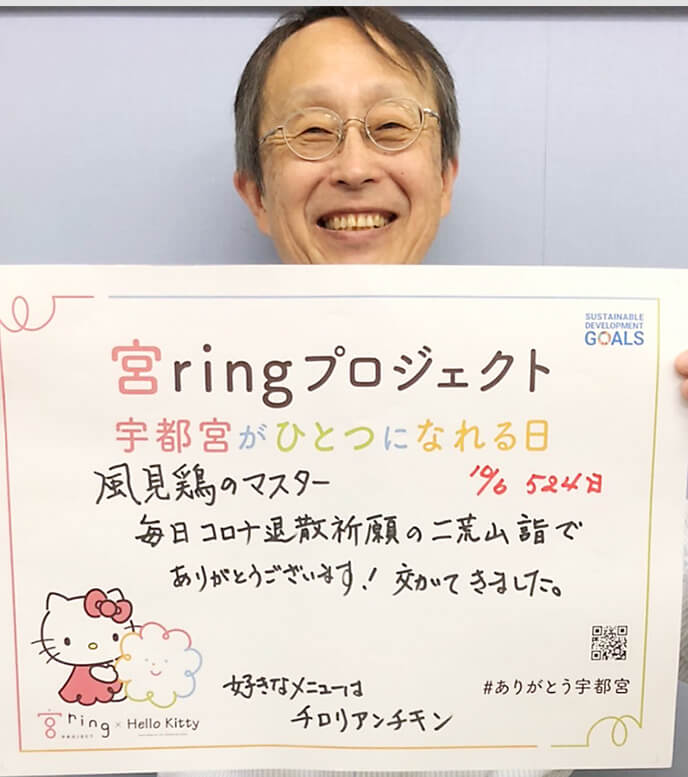 SUSTAINABLE
DEVELOPMENT
GOALS
宮ringプロジェクト
宇都宮がひとつになれる日
風見鶏のマスター 10/6 524日
毎日コロナ退散祈願の二荒山詣で
ありがとうございます!
きました。
好きなメニューは
チロリアンチキン
#ありがとう宇都宮
宮ring × Hello Kitty
PROJECT